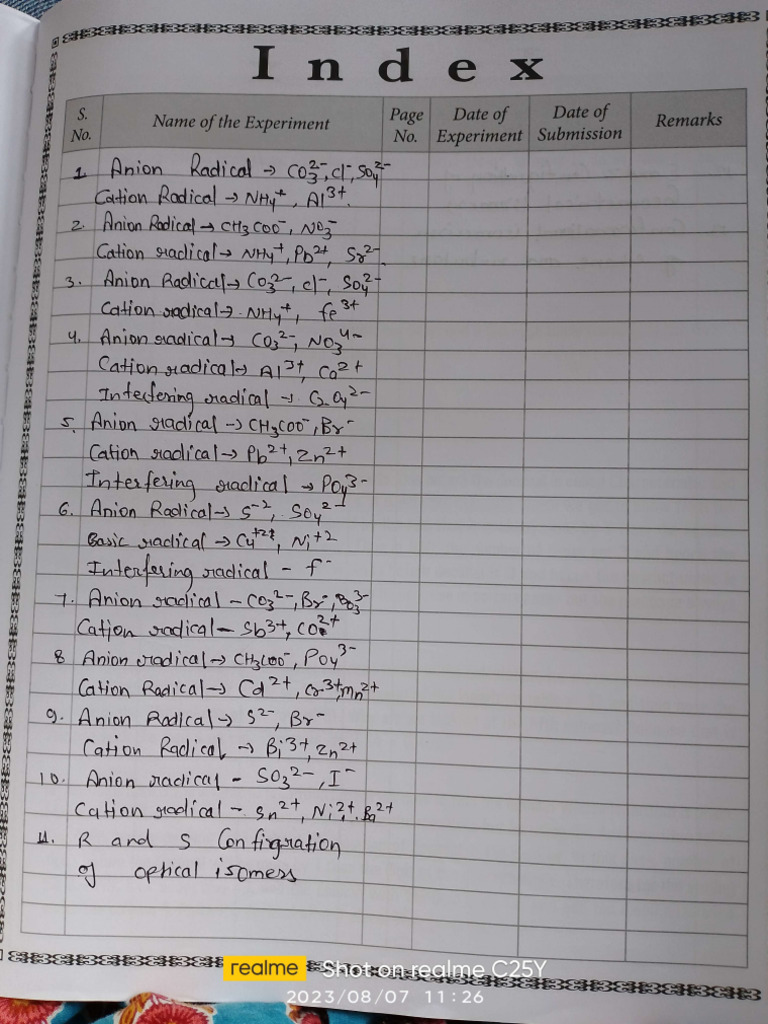 Index
S. No. Name of the Experiment Page No. Date of Experiment Date of Submission Remarks
1. Anion Radical → CO₃²⁻, Cl⁻, SO₄²⁻
Cation Radical → NH₄⁺, Al³⁺.
2. Anion Radical → CH₃COO⁻, NO₃⁻
Cation radical → NH₄⁺, Pb²⁺, Sr²⁻.
3. Anion Radical → CO₃²⁻, Cl⁻, SO₄²⁻
Cation radical → NH₄⁺, fe³⁺
4. Anion radical → CO₃²⁻, NO₃⁴⁻
Cation radical → Al³⁺, Ca²⁺
Interfering radical → C₂O₄²⁻
5. Anion radical → CH₃COO⁻, Br⁻
Cation radical → Pb²⁺, Zn²⁺
Interfering radical → PO₄³⁻
6. Anion Radical → S⁻², SO₄²⁻
Basic radical → Cu⁺², Ni⁺²
Interfering radical - f⁻
7. Anion radical - CO₃²⁻, Br⁻, BO₃³⁻
Cation radical - Sb³⁺, CO²⁺
8 Anion radical → CH₃COO⁻, PO₄³⁻
Cation Radical → Cd²⁺, Cr³⁺, Mn²⁺
9. Anion Radical → S²⁻, Br⁻
Cation Radical → Bi³⁺, Zn²⁺
10. Anion radical - SO₃²⁻, I⁻
Cation radical - Sn²⁺, Ni²⁺, Ba²⁺
11. R and S Configration
of optical isomers
realme Shot on realme C25Y
2023/08/07 11:26